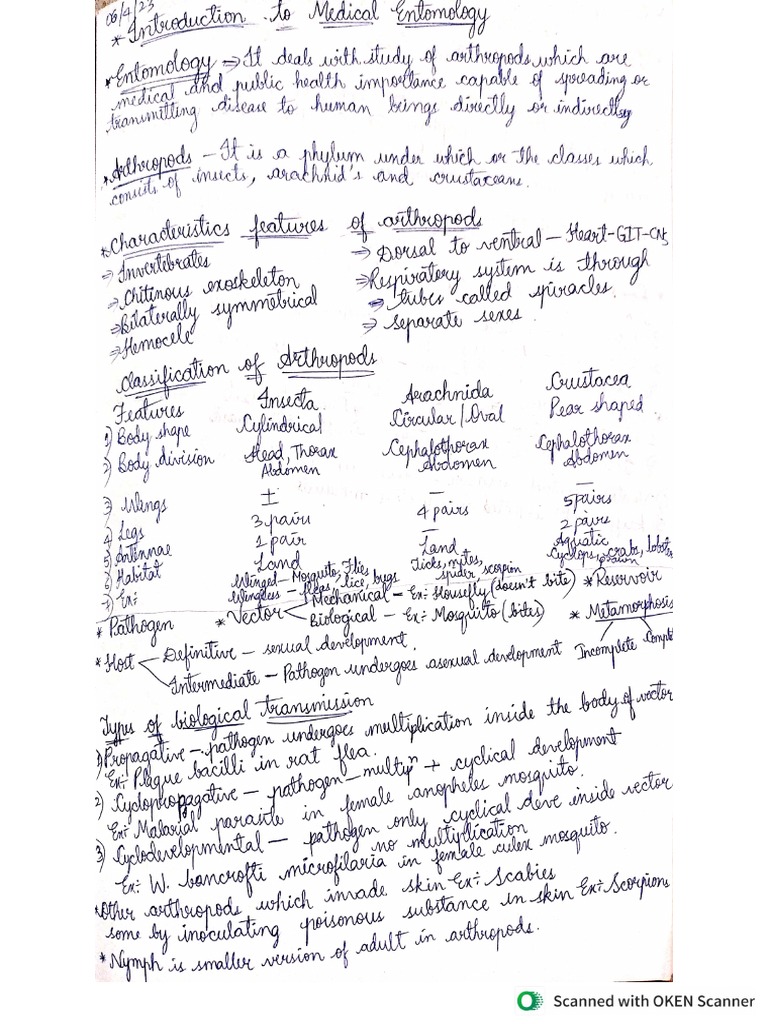 06/4/23
* Introduction to Medical Entomology
* Entomology ⇒ It deals with study of arthropods which are
medical and public health importance capable of spreading or
transmitting disease to human beings directly or indirectly
* Arthropods - It is a phylum under which or the classes which
consists of insects, arachnid's and crustaceans.
* Characteristics features of arthropods
⇒ Invertebrates
⇒ Chitinous exoskeleton
⇒ Bilaterally symmetrical
⇒ Hemocele
⇒ Dorsal to ventral - Heart-GIT-CNS
⇒ Respiratory system is through
⇒ tubes called spiracles.
⇒ Separate sexes.
Classification of Arthropods
Features Insecta Arachnida Crustacea
1) Body shape Cylindrical Circular / Oval Pear shaped
2) Body division Head, Thorax Abdomen Cephalothorax Abdomen Cephalothorax Abdomen
3) Wings ± — —
4) Legs 3 pairs 4 pairs 5 pairs
5) Antennae 1 pair — 2 pairs
6) Habitat Land Land Aquatic
7) Ex: Winged - Mosquito, Flies Wingless - fleas, lice, bugs Ticks, mites, spider, scorpion Cyclops, crabs, lobster
* Pathogen
* Vector
Mechanical - Ex: Housefly (doesn't bite)
Biological - Ex: Mosquito (bites)
* Reservoir
* Metamorphosis
Incomplete
* Host
Definitive - sexual development.
Intermediate - Pathogen undergoes asexual development
Types of biological transmission
1) Propagative - pathogen undergoes multiplication inside the body of vector
Ex: Plague bacilli in rat flea.
2) Cyclopropagative - pathogen - multipⁿ + cyclical development
Ex: Malarial parasite in female anopheles mosquito.
3) Cyclodevelopmental - pathogen only cyclical deve inside vector
no multiplication
Ex: W. bancrofti microfilaria in female culex mosquito.
* Other arthropods which invade skin Ex: Scabies
some by inoculating poisonous substance in skin Ex: Scorpions
* Nymph is smaller version of adult in arthropods.
Scanned with OKEN Scanner